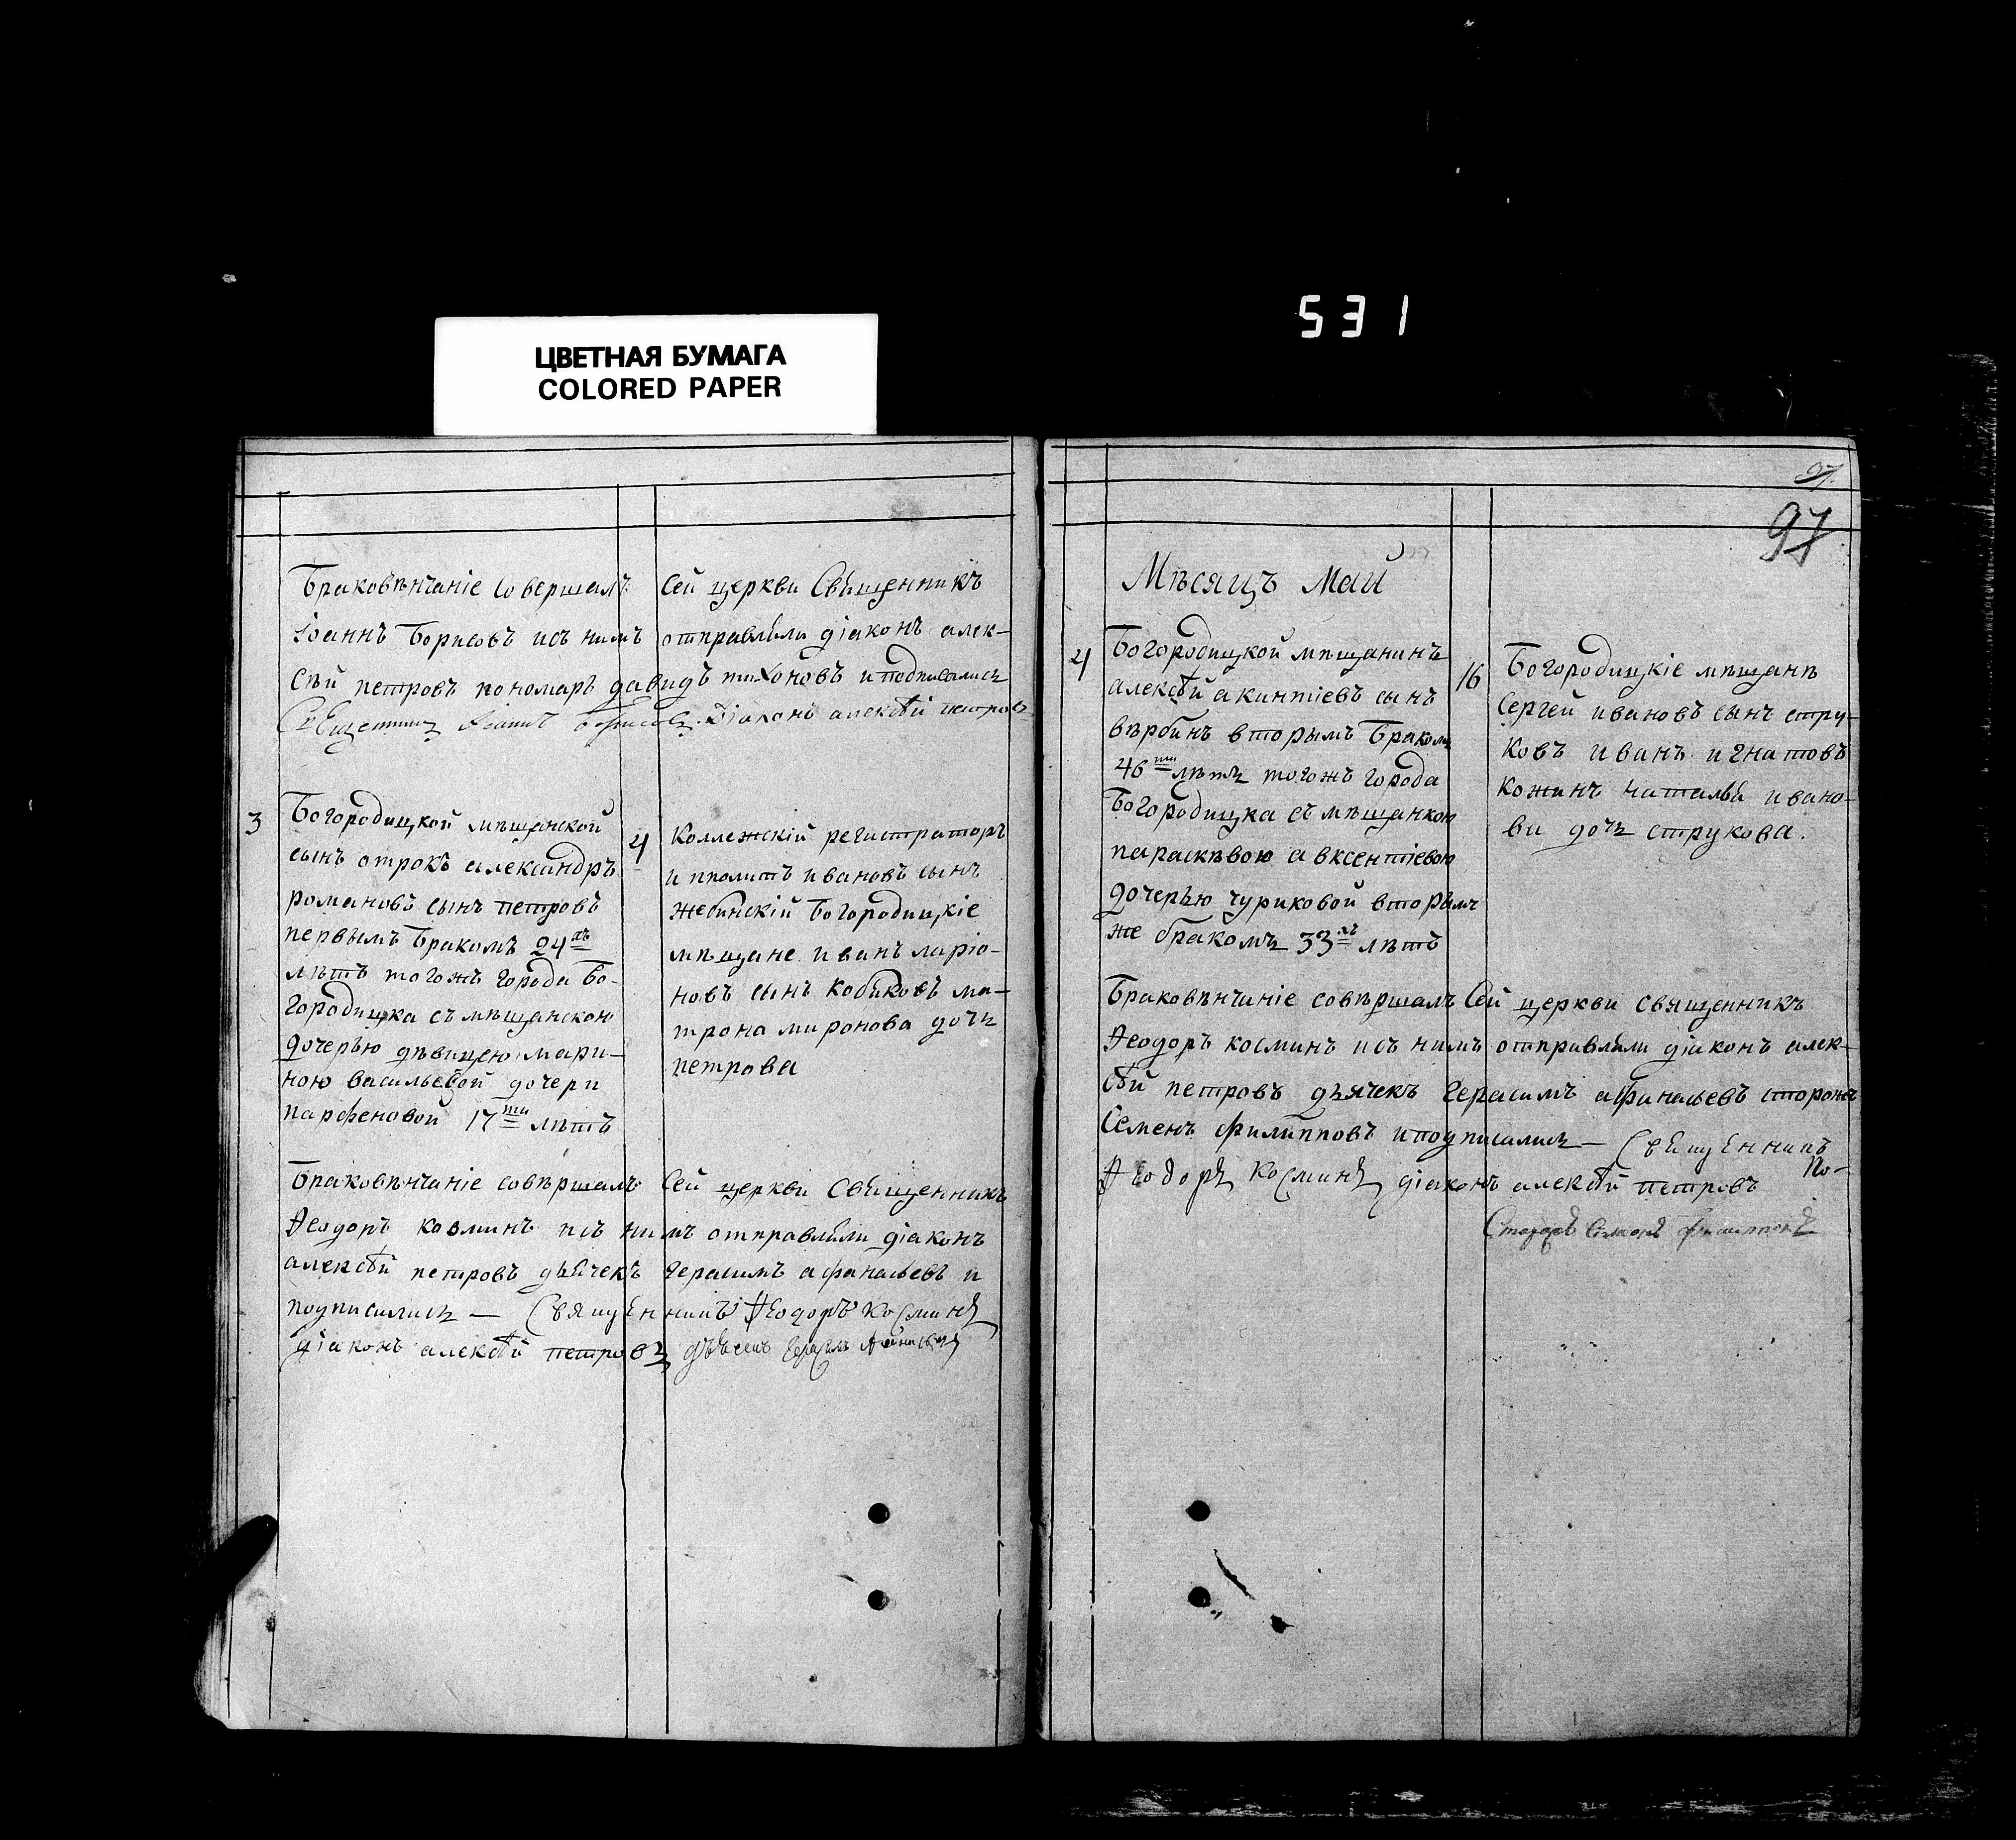 531
ЦВЕТНАЯ БУМАГА
COLORED PAPER
Браковѣнчаніе совершалъ сей церкви Священникъ
Іоаннъ Борисовъ исъ нимъ отправляли діаконъ алек-
сѣй петровъ пономарь давидъ тихоновъ и подписались
Священникъ Іоаннъ Борисовъ. Діаконъ алексѣй петровъ
3
Богородицкой мѣщанской
сынъ отрокъ александръ
романовъ сынъ петровъ
первымъ бракомъ 24
лѣтъ тогожъ города Бо-
городицка съ мѣщанскою
дочерью дѣвицею мари-
ною васильевой дочери
парфеновой 17ти лѣтъ
4
Коллежскій регистраторъ
ипполитъ ивановъ сынъ
жебинскій Богородицкіе
мѣщане иванъ ларіо-
новъ сынъ кобяковъ ма-
трона миронова дочь
петрова
Браковѣнчаніе совѣршалъ сей церкви Священникъ
Ѳеодоръ козминъ исъ нимъ отправляли діаконъ
алексѣй петровъ дьячекъ герасимъ афанасьевъ и
подписались — Священникъ Ѳеодоръ Косминъ
діаконъ алексѣй петровъ дьячекъ Герасимъ Афанасьевъ
97
97
Мѣсяцъ Май
4
Богородицкой мѣщанинъ
алексѣй акинтіевъ сынъ
вѣрбинъ вторымъ Бракомъ
46ти лѣтъ тогожъ города
Богородицка съ мѣщанкою
параскѣвою авксентіевою
дочерью чуриковой вторымъ
же бракомъ 33 лѣтъ
16
Богородицкіе мѣщанѣ
Сергей ивановъ сынъ стру-
ковъ иванъ игнатовъ
кожинъ наталья ивано-
ва дочь струкова.
Браковѣнчаніе совѣршалъ Сей церкви священникъ
Ѳеодоръ косминъ исъ нимъ отправляли діаконъ алек-
сѣй петровъ дьячекъ Герасимъ афанасьевъ сторожъ
Семенъ филипповъ и подписались — Священникъ
Ѳеодоръ Косминъ діаконъ алексѣй петровъ По-